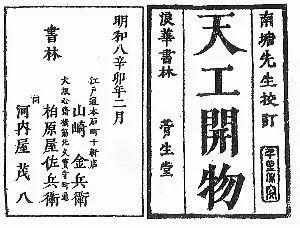 南塘先生校訂
天工開物
浪華書林 菅生堂
明和八辛卯年二月
書林
江戸通本石町十軒店
山崎金兵衛
柏原屋佐兵衛
同
河内屋茂八